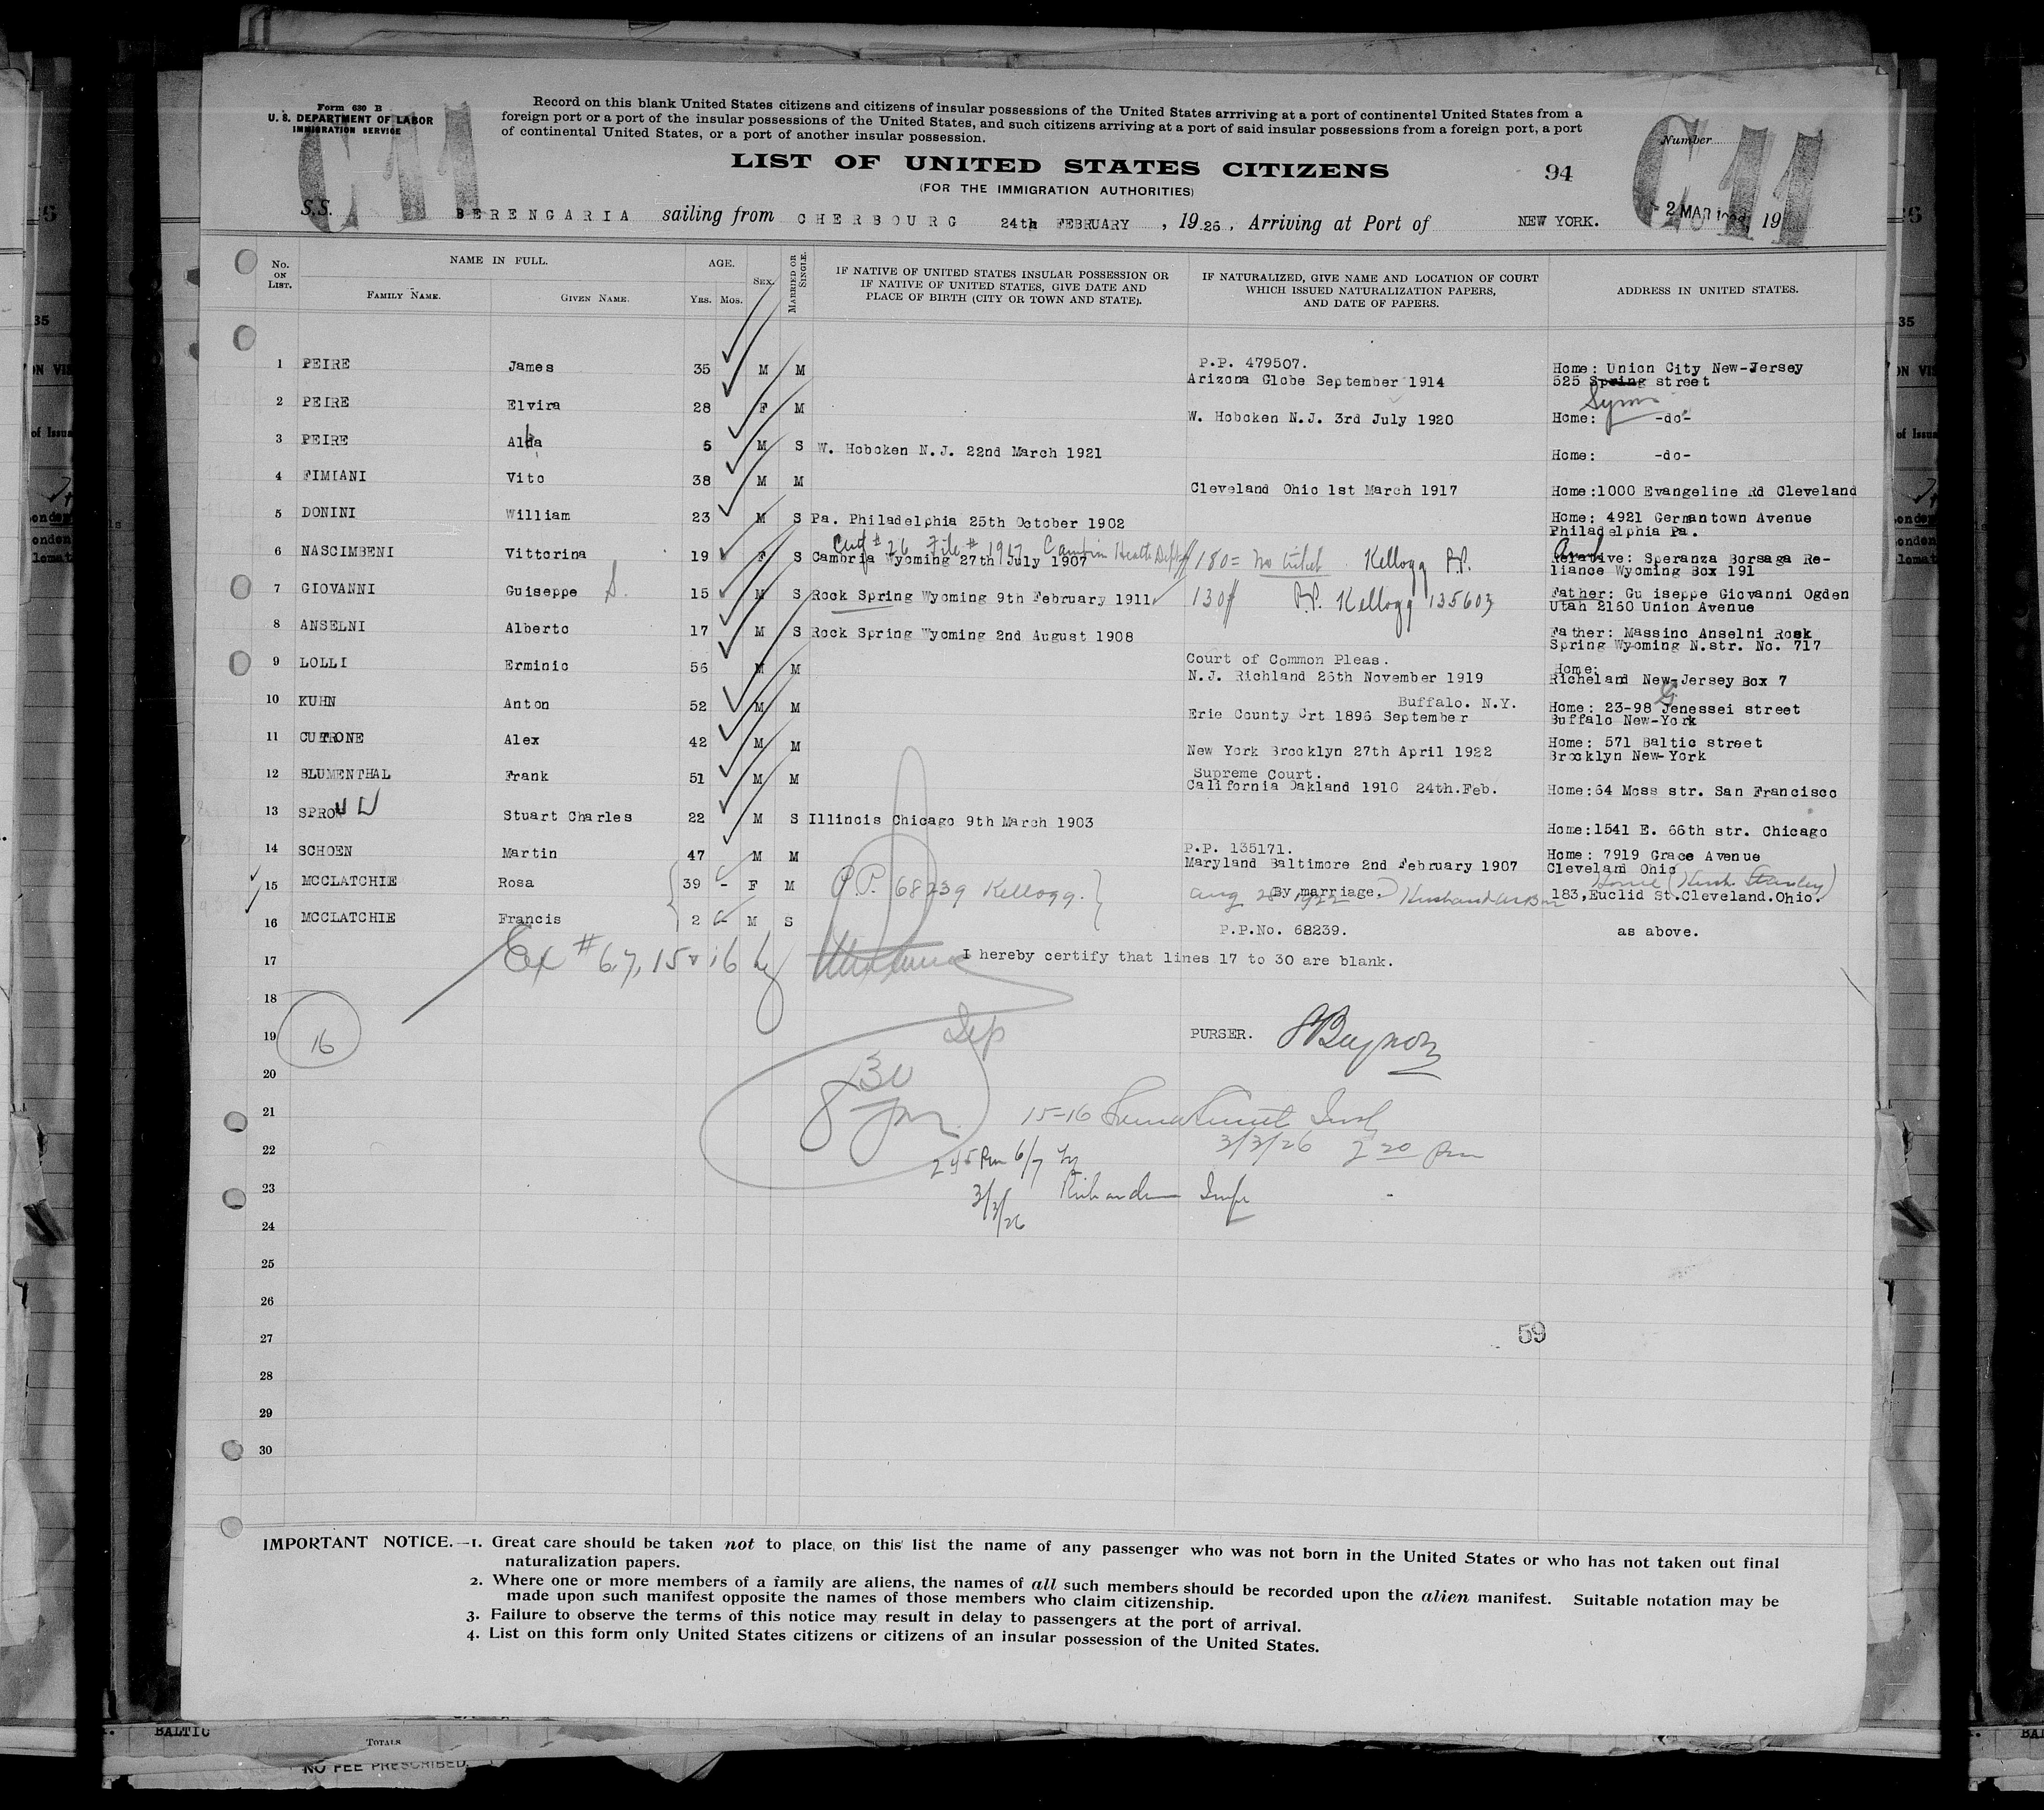 Form 630 B
U. S. DEPARTMENT OF LABOR
IMMIGRATION SERVICE
C 11
Record on this blank United States citizens and citizens of insular possessions of the United States arrriving at a port of continental United States from a
foreign port or a port of the insular possessions of the United States, and such citizens arriving at a port of said insular possessions from a foreign port, a port
of continental United States, or a port of another insular possession.
Number
C 11
LIST OF UNITED STATES CITIZENS
94
(FOR THE IMMIGRATION AUTHORITIES)
S.S. BERENGARIA sailing from CHERBOURG 24th FEBRUARY, 19 26, Arriving at Port of NEW YORK. 2 MAR 19
No. ON LIST.
NAME IN FULL.
FAMILY NAME.
GIVEN NAME.
AGE.
Yrs. Mos.
SEX.
MARRIED OR SINGLE.
IF NATIVE OF UNITED STATES INSULAR POSSESSION OR
IF NATIVE OF UNITED STATES, GIVE DATE AND
PLACE OF BIRTH (CITY OR TOWN AND STATE).
IF NATURALIZED, GIVE NAME AND LOCATION OF COURT
WHICH ISSUED NATURALIZATION PAPERS,
AND DATE OF PAPERS.
ADDRESS IN UNITED STATES.
1 PEIRE James 35 M M P.P. 479507. Home: Union City New-Jersey
Arizona Globe September 1914 525 Spring street
Syms
2 PEIRE Elvira 28 F M W. Hoboken N.J. 3rd July 1920 Home: -do-
3 PEIRE Alda 5 M S W. Hoboken N.J. 22nd March 1921 Home: -do-
4 FIMIANI Vito 38 M M Cleveland Ohio 1st March 1917 Home:1000 Evangeline Rd Cleveland
5 DONINI William 23 M S Pa. Philadelphia 25th October 1902 Home: 4921 Germantown Avenue
Philadelphia Pa.
# 26 File # 1947 Health Dept
6 NASCIMBENI Vittorina 19 F S Cambria Wyoming 27th July 1907 180= no ticket Kellogg P.P. Relative: Speranza Borsaga Re-
liance Wyoming Box 191
7 GIOVANNI Guiseppe S. 15 M S Rock Spring Wyoming 9th February 1911 130# P.P. Kellogg 135603 Father: Gu iseppe Giovanni Ogden
Utah 2150 Union Avenue
8 ANSELNI Alberto 17 M S Rock Spring Wyoming 2nd August 1908 Father: Massino Anselni Rock
Spring Wyoming N.str. No. 717
9 LOLLI Erminio 56 M M Court of Common Pleas. Home:
N.J. Richland 26th November 1919 Richeland New-Jersey Box 7
10 KUHN Anton 52 M M Buffalo. N.Y. Home: 23-98 Jenessei street
G
Erie County Crt 1896 September Buffalo New-York
11 CUTRONE Alex 42 M M New York Brooklyn 27th April 1922 Home: 571 Baltic street
Brooklyn New-York
12 BLUMENTHAL Frank 51 M M Supreme Court.
California Oakland 1910 24th.Feb. Home:64 Moss str. San Francisco
13 SPROW Stuart Charles 22 M S Illinois Chicago 9th March 1903 Home:1541 E. 66th str. Chicago
14 SCHOEN Martin 47 M M P.P. 135171. Home: 7919 Grace Avenue
Maryland Baltimore 2nd February 1907 Cleveland Ohio
Home (Husb. Stanley)
15 MCCLATCHIE Rosa 39 - F M P.P. 68239 Kellogg. Aug 28 1922 By marriage. 183,Euclid St.Cleveland.Ohio.
16 MCCLATCHIE Francis 2 M S P.P.No. 68239. as above.
17 Ex # 6,7, 15 & 16 by I hereby certify that lines 17 to 30 are blank.
18
19 16 Dep PURSER. Beynon
20 8 30 pm
21 15-16 Insp
22 3/3/26 2 20 pm
2 45 Pm 6/7 by
23 3/3/26 Richardson Insp
24
25
26
27 59
28
29
30
IMPORTANT NOTICE.—1. Great care should be taken not to place on this list the name of any passenger who was not born in the United States or who has not taken out final
naturalization papers.
2. Where one or more members of a family are aliens, the names of all such members should be recorded upon the alien manifest. Suitable notation may be
made upon such manifest opposite the names of those members who claim citizenship.
3. Failure to observe the terms of this notice may result in delay to passengers at the port of arrival.
4. List on this form only United States citizens or citizens of an insular possession of the United States.
BALTIC
TOTALS
NO FEE PRESCRIBED.